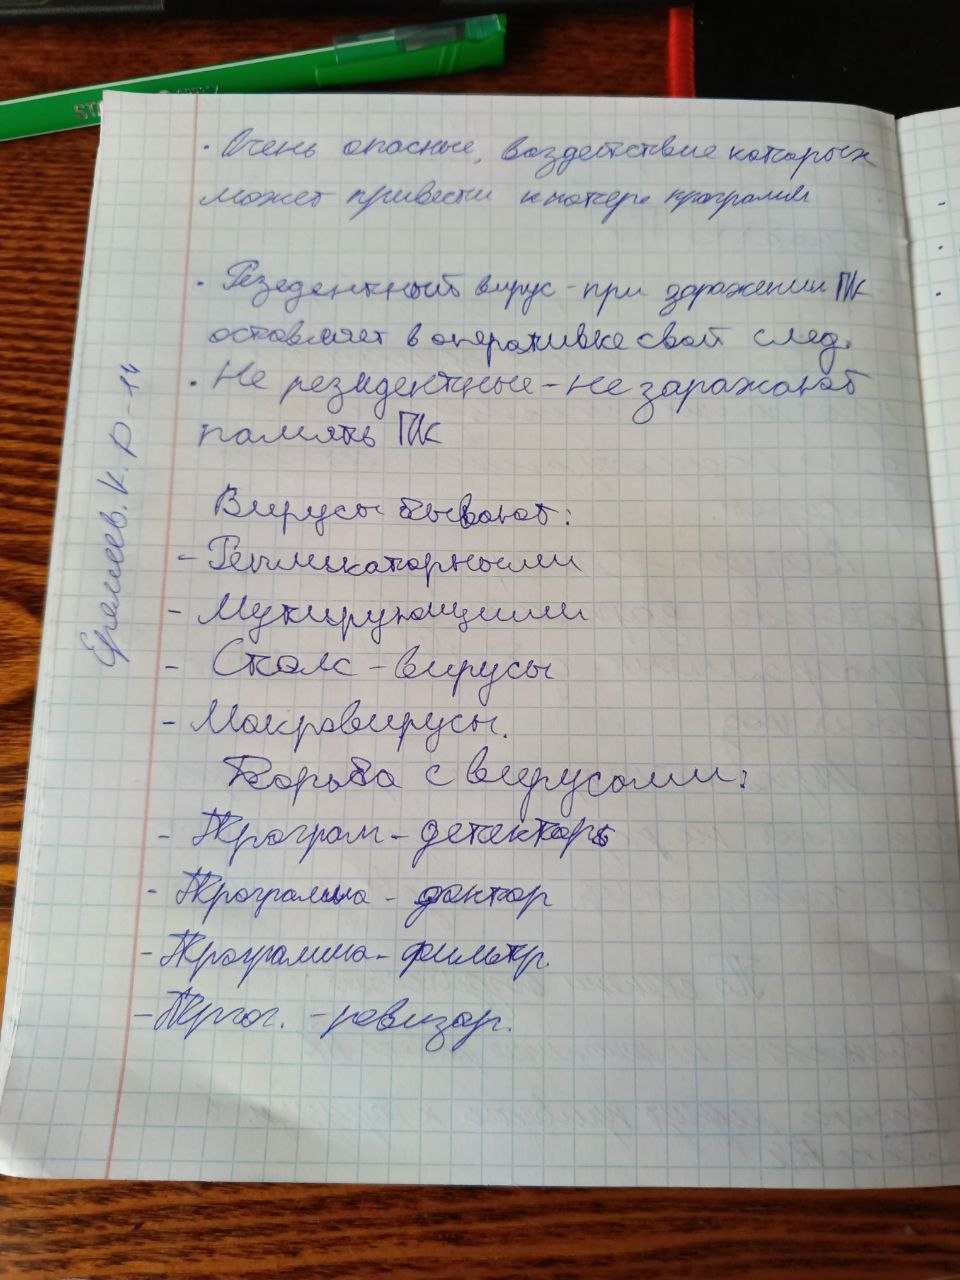 • Очень опасные, воздействие которых
может привести к потере программ
• Резедентный вирус - при заражении ПК
оставляет в оперативке свой след.
• Не резидентные - не заражают
память ПК
Вирусы бывают:
- Репликаторными
- Мутирующими
- Стелс - вирусы
- Макровирусы.
Борьба с вирусами:
- Програм - детекторы
- Программа - доктор
- Программа - фильтр.
- Прог. - ревизор.
Еремеев. К. Д-14